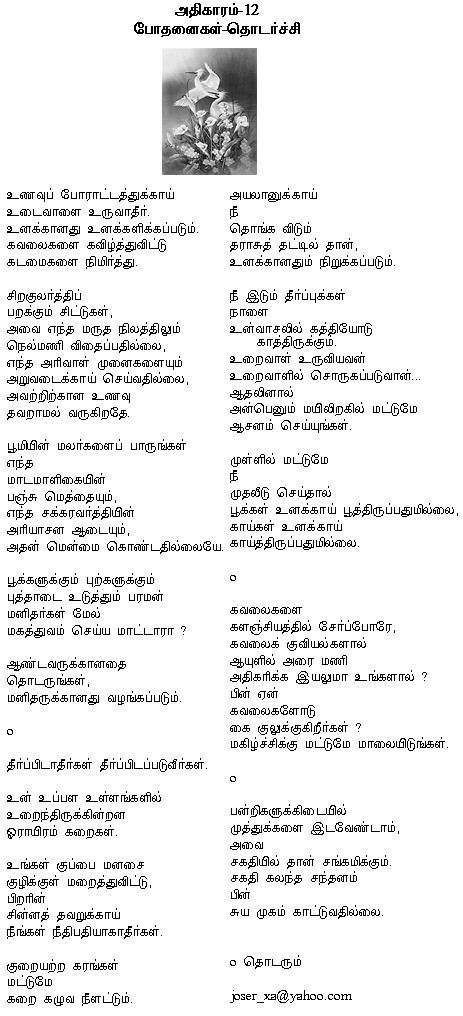 அதிகாரம்-12
போதனைகள்-தொடர்ச்சி
உணவுப் போராட்டத்துக்காய்
உடைவாளை உருவாதீர்.
உனக்கானது உனக்களிக்கப்படும்.
கவலைகளை கவிழ்த்துவிட்டு
கடமைகளை நிமிர்த்து.
சிறகுலர்த்திப்
பறக்கும் சிட்டுகள்,
அவை எந்த மருத நிலத்திலும்
நெல்மணி விதைப்பதில்லை,
எந்த அரிவாள் முனைகளையும்
அறுவடைக்காய் செய்வதில்லை,
அவற்றிற்கான உணவு
தவறாமல் வருகிறதே.
பூமியின் மலர்களைப் பாருங்கள்
எந்த
மாடமாளிகையின்
பஞ்சு மெத்தையும்,
எந்த சக்கரவர்த்தியின்
அரியாசன ஆடையும்,
அதன் மென்மை கொண்டதில்லையே.
பூக்களுக்கும் புற்களுக்கும்
புத்தாடை உடுத்தும் பரமன்
மனிதர்கள் மேல்
மகத்துவம் செய்ய மாட்டாரா ?
ஆண்டவருக்கானதை
தொடருங்கள்,
மனிதருக்கானது வழங்கப்படும்.
o
தீர்ப்பிடாதீர்கள் தீர்ப்பிடப்படுவீர்கள்.
உன் உப்பள உள்ளங்களில்
உறைந்திருக்கின்றன
ஓராயிரம் கறைகள்.
உங்கள் குப்பை மனசை
குழிக்குள் மறைத்துவிட்டு,
பிறரின்
சின்னத் தவறுக்காய்
நீங்கள் நீதிபதியாகாதீர்கள்.
குறையற்ற கரங்கள்
மட்டுமே
கறை கழுவ நீளட்டும்.
அயலானுக்காய்
நீ
தொங்க விடும்
தராசுத் தட்டில் தான்,
உனக்கானதும் நிறுக்கப்படும்.
நீ இடும் தீர்ப்புக்கள்
நாளை
உன்வாசலில் கத்தியோடு
காத்திருக்கும்.
உறைவாள் உருவியவன்
உறைவாளில் சொருகப்படுவான்...
ஆதலினால்
அன்பெனும் மயிலிறகில் மட்டுமே
ஆசனம் செய்யுங்கள்.
முள்ளில் மட்டுமே
நீ
முதலீடு செய்தால்
பூக்கள் உனக்காய் பூத்திருப்பதுமில்லை,
காய்கள் உனக்காய்
காய்த்திருப்பதுமில்லை.
o
கவலைகளை
களஞ்சியத்தில் சேர்ப்போரே,
கவலைக் குவியல்களால்
ஆயுளில் அரை மணி
அதிகரிக்க இயலுமா உங்களால் ?
பின் ஏன்
கவலைகளோடு
கை குலுக்குகிறீர்கள் ?
மகிழ்ச்சிக்கு மட்டுமே மாலையிடுங்கள்.
o
பன்றிகளுக்கிடையில்
முத்துக்களை இடவேண்டாம்,
அவை
சகதியில் தான் சங்கமிக்கும்.
சகதி கலந்த சந்தனம்
பின்
சுய முகம் காட்டுவதில்லை.
o தொடரும்
joser_xa@yahoo.com